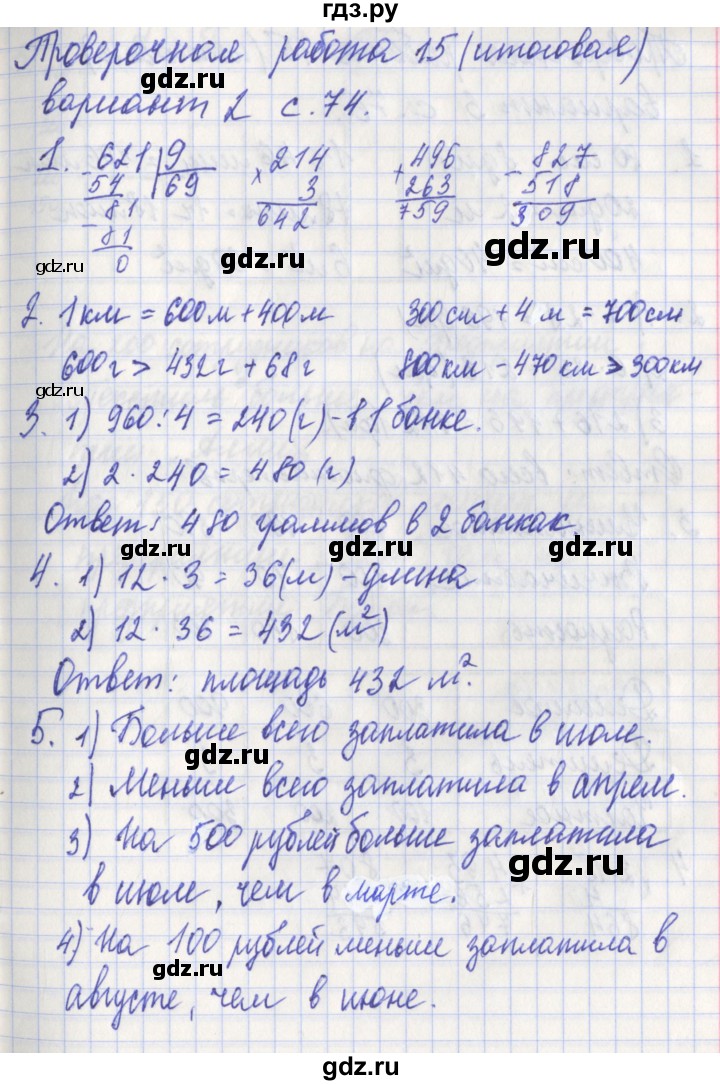 гдз.ру
Проверочная работа 15 (итоговая)
gdz.ru
gdz.ru
вариант 2 с. 74.
1. - 621 | 9
54 69
- 81
- 81
0
× 214
3
642
+ 496
263
759
- 827
518
309
gdz.ru
gdz.ru
gdz.ru
2. 1 км = 600 м + 400 м 300 см + 4 м = 700 см
600 г > 432 г + 68 г 800 км - 470 км > 300 км
gdz.ru
gdz.ru
3. 1) 960 : 4 = 240 (г) - в 1 банке.
gdz.ru
2) 2 · 240 = 480 (г)
Ответ: 480 граммов в 2 банках
gdz.ru
gdz.ru
4. 1) 12 · 3 = 36 (м) - длина
2) 12 · 36 = 432 (м²)
gdz.ru
gdz.ru
Ответ: площадь 432 м².
5. 1) Больше всего заплатила в июле.
gdz.ru
2) Меньше всего заплатила в апреле.
gdz.ru
3) На 500 рублей больше заплатила
gdz.ru
в июле, чем в марте.
4) На 100 рублей меньше заплатила в
gdz.ru
gdz.ru
августе, чем в июне.
gdz.ru
gdz.ru